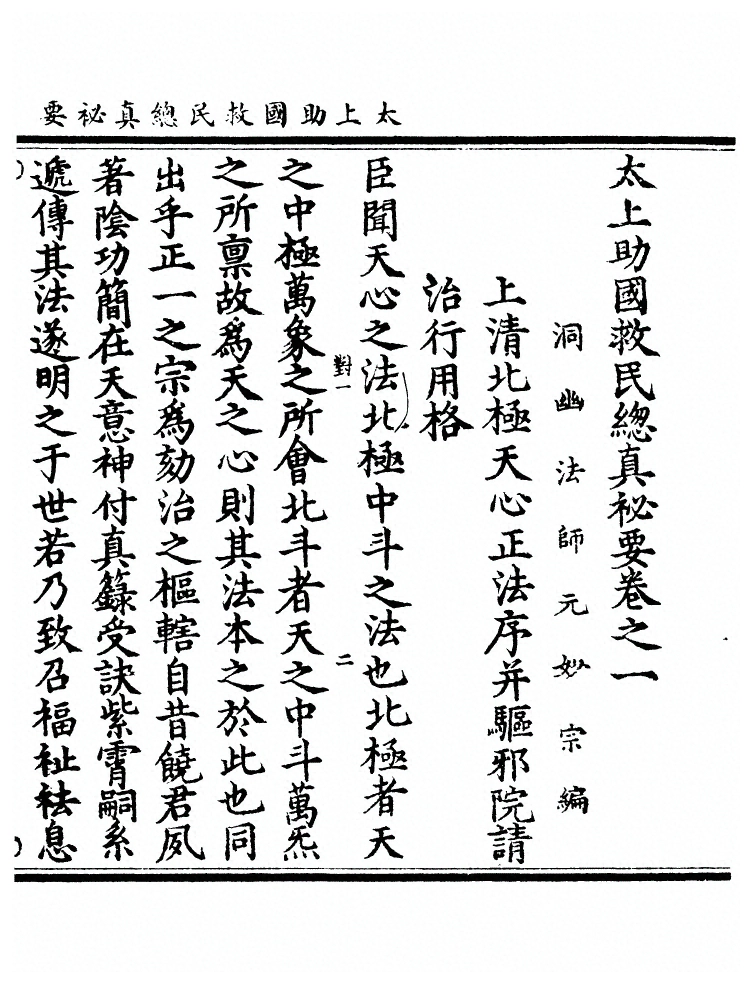 太上助國救民總真祕要
太上助國救民總真祕要卷之一
洞幽法師元妙宗編
上清北極天心正法序并驅邪院請
治行用格
臣聞天心之法北極中斗之法也北極者天
對一
二
之中極萬象之所會北斗者天之中斗萬炁
之所稟故爲天之心則其法本之於此也同
出乎正一之宗爲劾治之樞轄自昔饒君夙
著陰功簡在天意神付真籙受訣紫霄嗣系
遞傳其法遂明之于世若乃致召福祉祛息